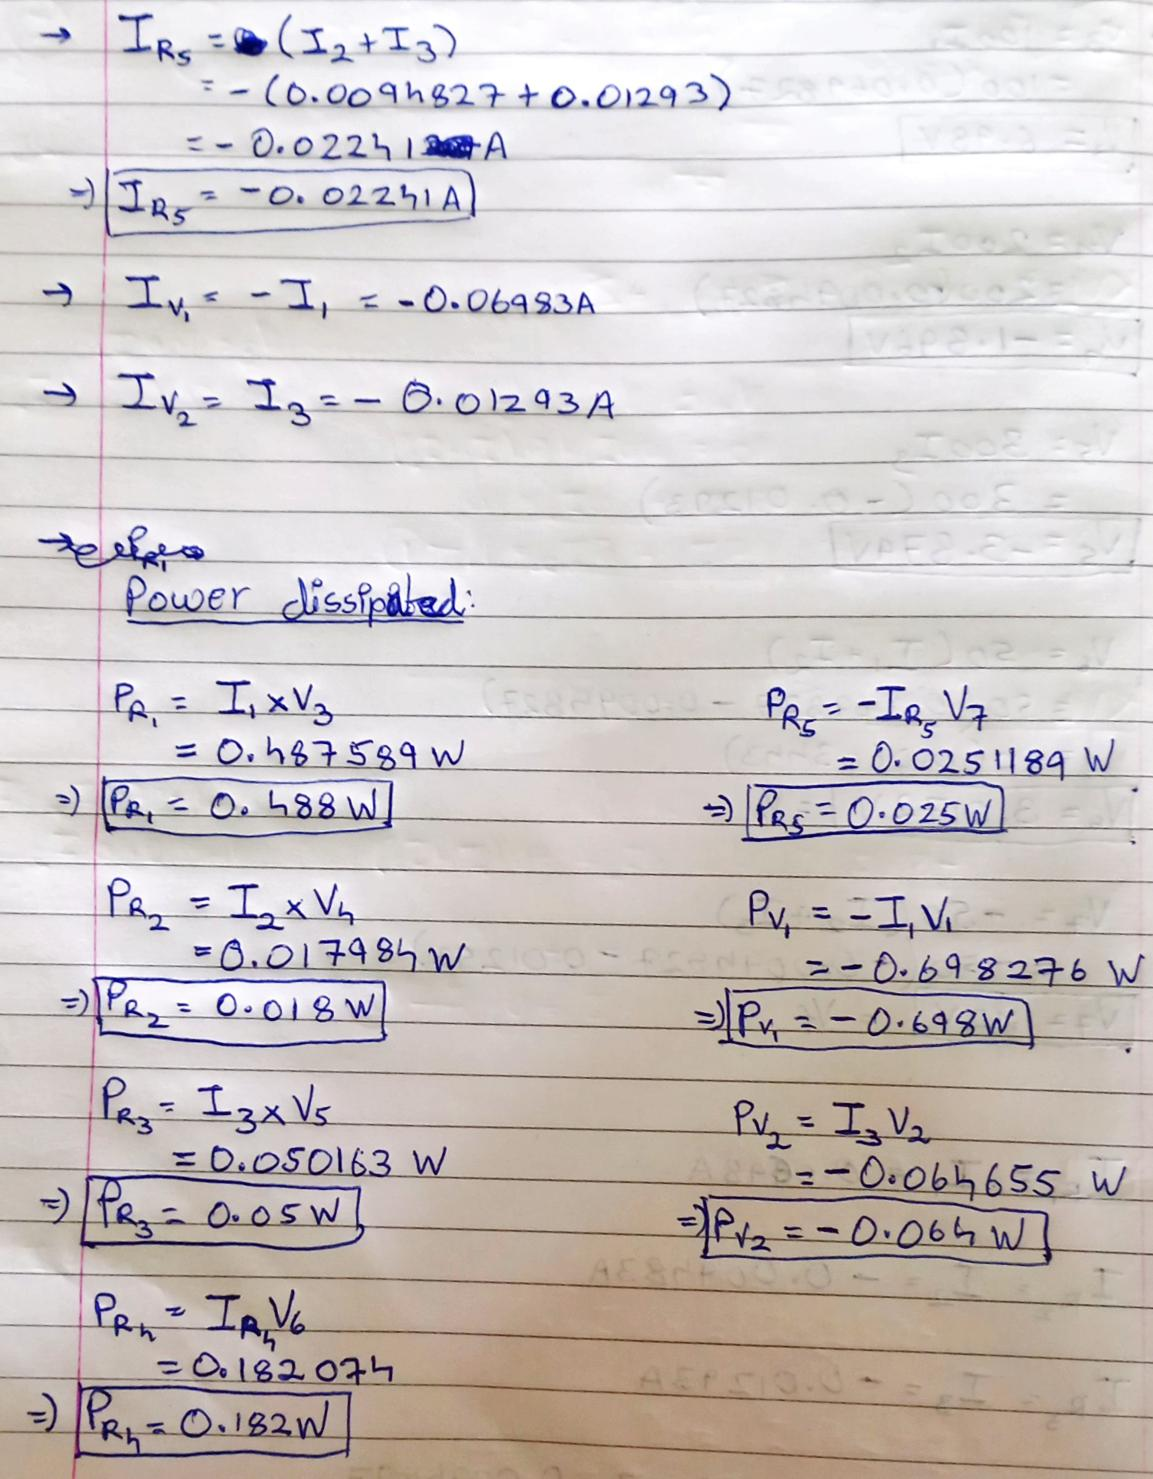 → I_R5 = (I_2 + I_3)
= - (0.0094827 + 0.01293)
= - 0.02241 A
⇒ I_R5 = -0.02241A
→ I_V1 = - I_1 = -0.06983A
→ I_V2 = I_3 = - 0.01293A
Power dissipated:
P_R1 = I_1 x V_3
= 0.487589 W
⇒ P_R1 = 0.488W
P_R2 = I_2 x V_4
= 0.017984 W
⇒ P_R2 = 0.018W
P_R3 = I_3 x V_5
= 0.050163 W
⇒ P_R3 = 0.05W
P_R4 = I_R4 V_6
= 0.182074
⇒ P_R4 = 0.182W
P_R5 = -I_R5 V_7
= 0.0251189 W
⇒ P_R5 = 0.025W
P_V1 = -I_1 V_1
= -0.698276 W
⇒ P_V1 = -0.698W
P_V2 = I_3 V_2
= -0.064655 W
⇒ P_V2 = -0.064W